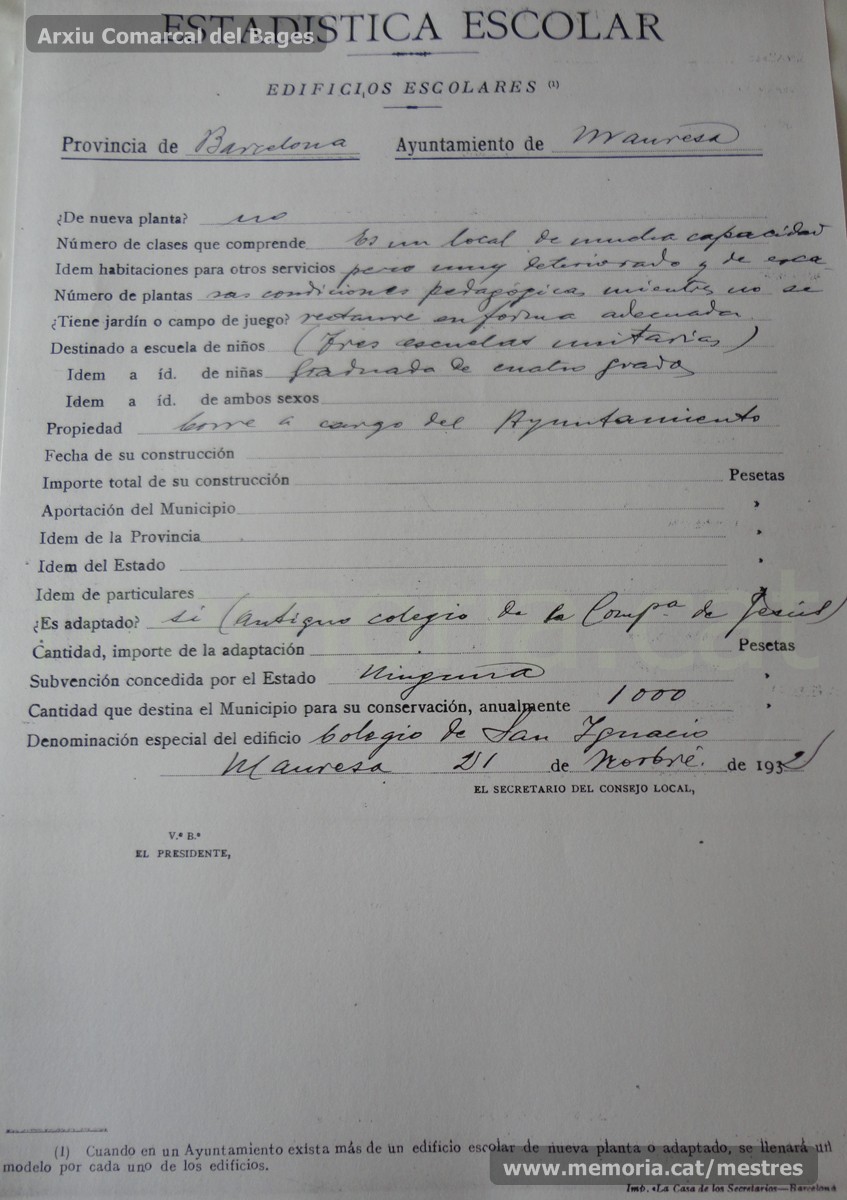 Arxiu Comarcal del Bages
ESTADISTICA ESCOLAR
EDIFICIOS ESCOLARES (1)
Provincia de Barcelona Ayuntamiento de Manresa
¿De nueva planta? no
Número de clases que comprende Es un local de mucha capacidad
Idem habitaciones para otros servicios pero muy deteriorado y de esca-
Número de plantas sas condiciones pedagógicas mientras no se
¿Tiene jardín o campo de juego? restaure en forma adecuada
Destinado a escuela de niños (Tres escuelas unitarias)
Idem a íd. de niñas Graduada de cuatro grados
Idem a íd. de ambos sexos
Propiedad Corre a cargo del Ayuntamiento
Fecha de su construcción
Importe total de su construcción Pesetas
Aportación del Municipio »
Idem de la Provincia »
Idem del Estado »
Idem de particulares »
¿Es adaptado? sí (antiguo colegio de la Compª de Jesús)
Cantidad, importe de la adaptación Pesetas
Subvención concedida por el Estado Ninguna »
Cantidad que destina el Municipio para su conservación, anualmente 1000 »
Denominación especial del edificio Colegio de San Ignacio
Manresa 21 de Novbre. de 1932
EL SECRETARIO DEL CONSEJO LOCAL,
V.º B.º
EL PRESIDENTE,
(1) Cuando en un Ayuntamiento exista más de un edificio escolar de nueva planta o adaptado, se llenará un
modelo por cada uno de los edificios.
www.memoria.cat/mestres
Imp. «La Casa de los Secretarios»—Barcelona